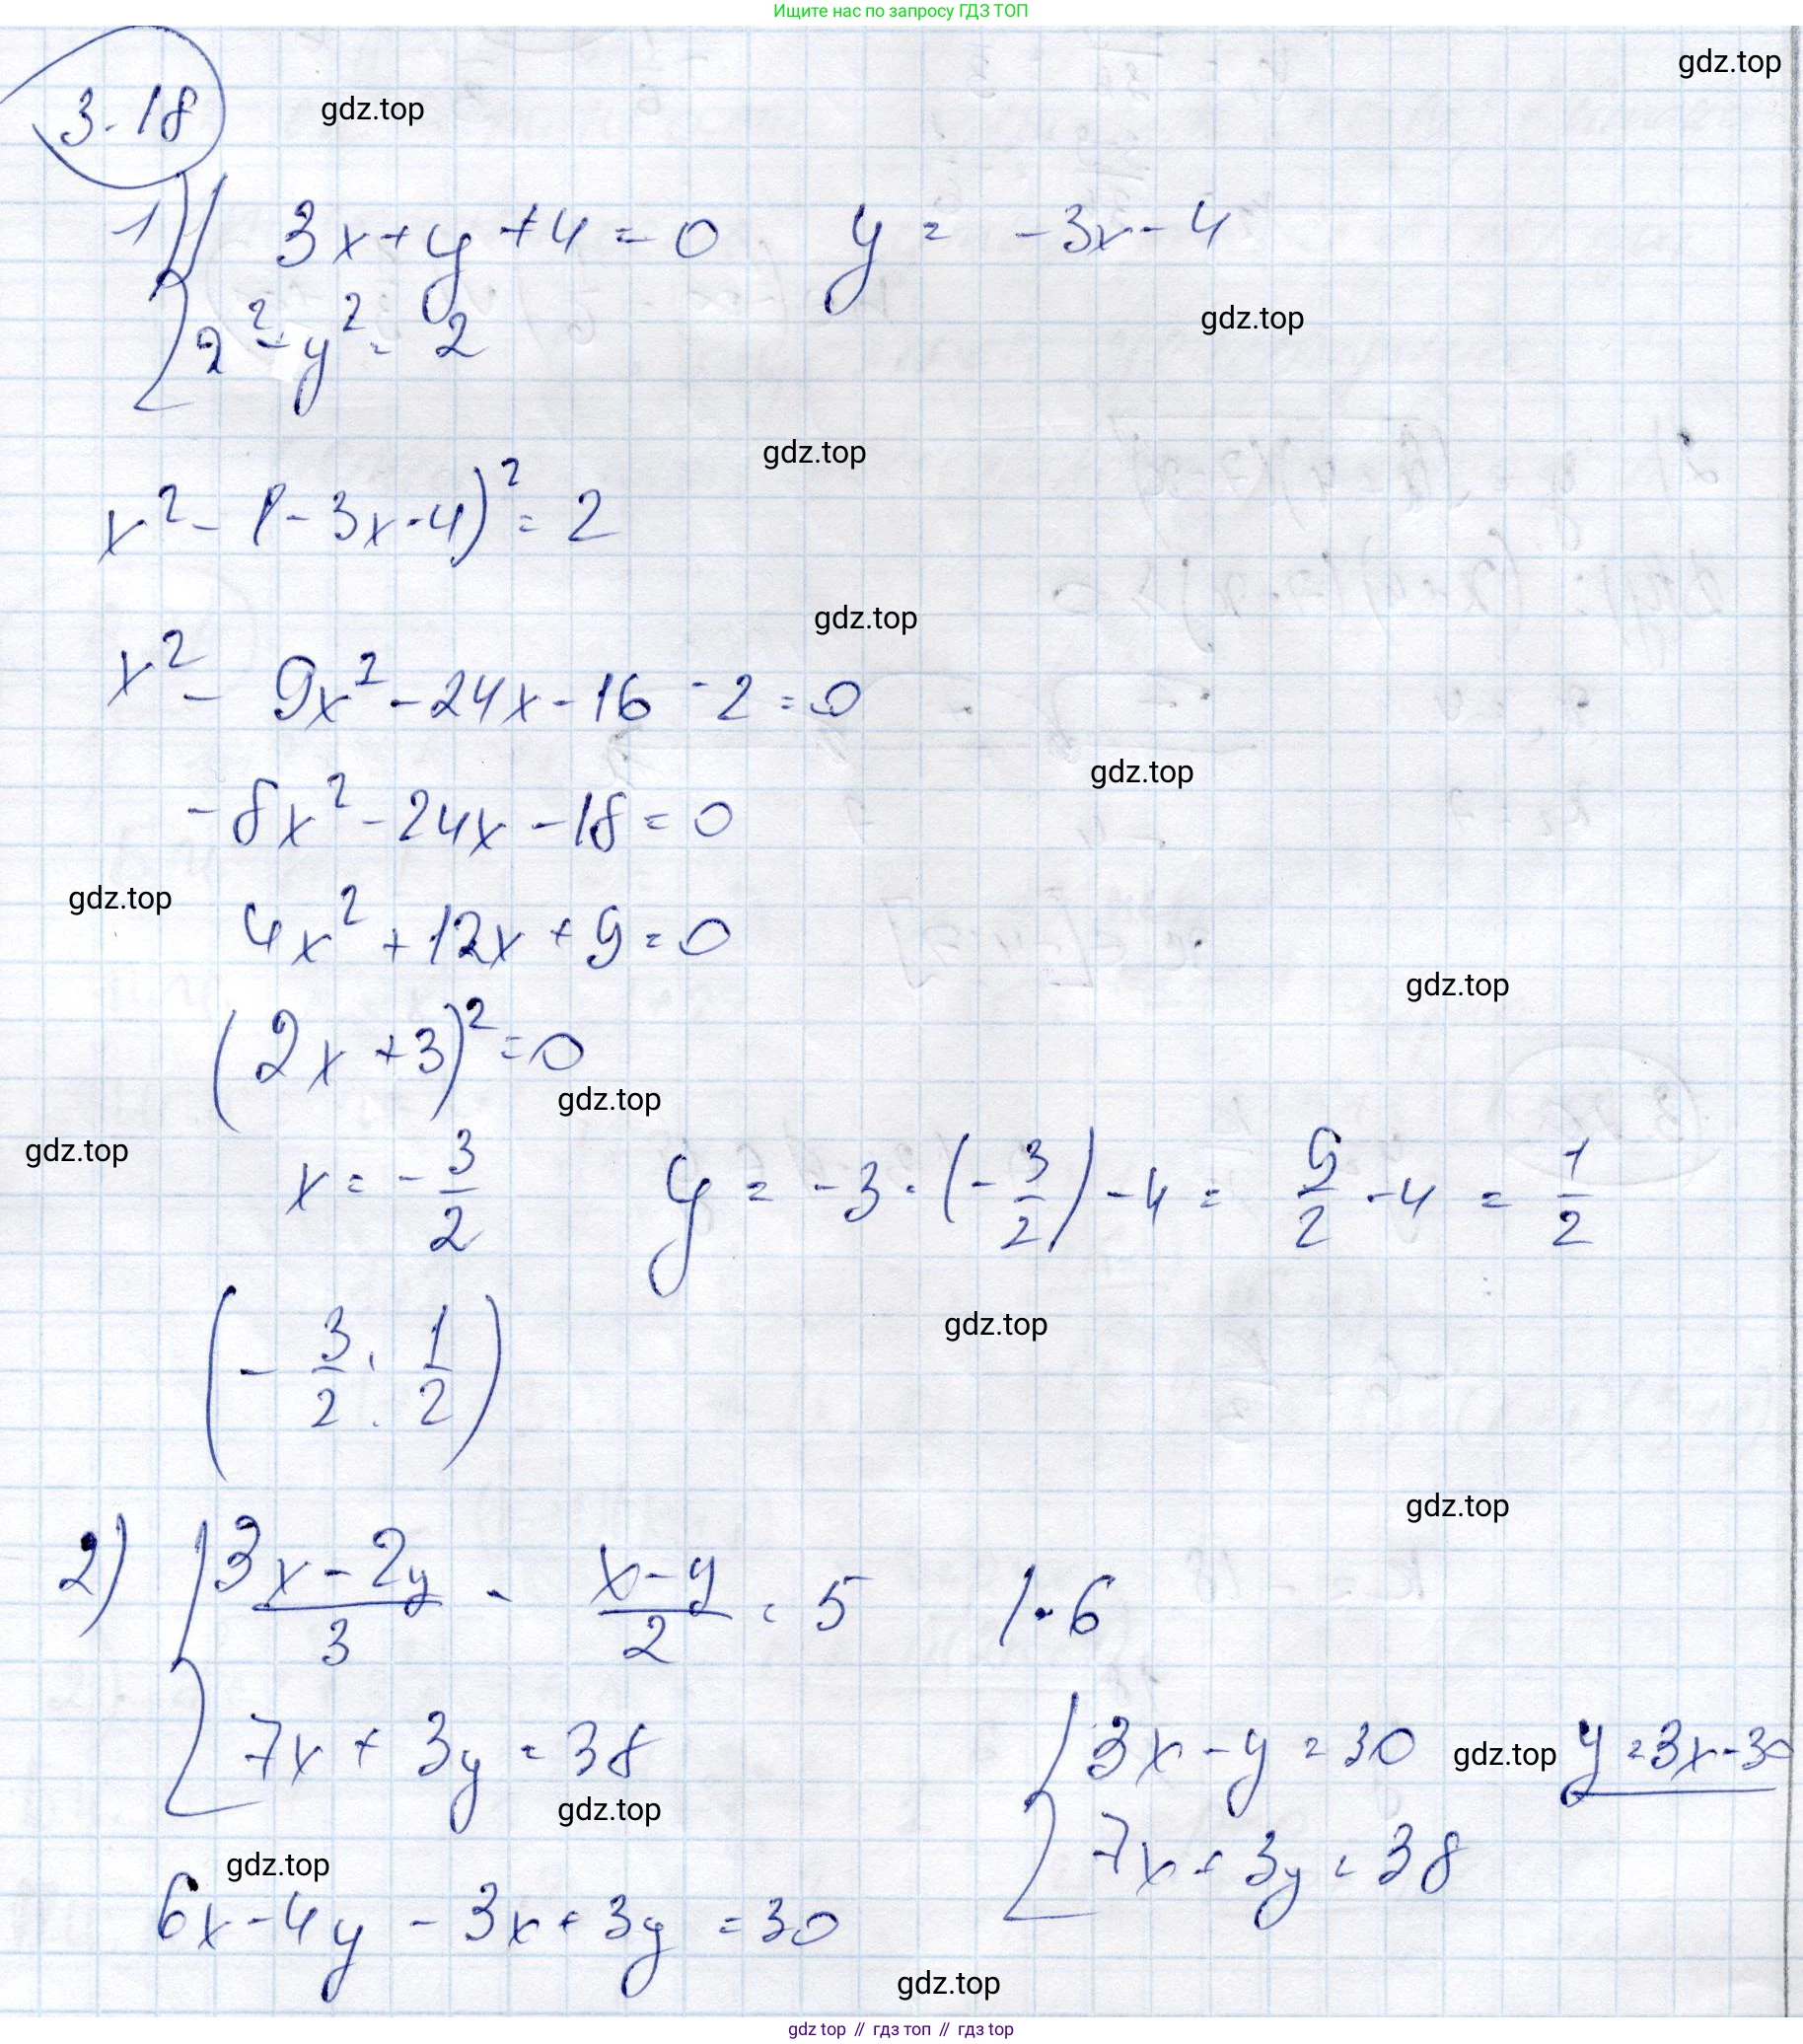 Ищите нас по запросу ГДЗ ТОП
gdz.top
3.18 gdz.top
1) { 3x + y + 4 = 0 y = -3x - 4
2² - y² = 2 gdz.top
gdz.top
x² - (-3x - 4)² = 2
gdz.top
x² - 9x² - 24x - 16 - 2 = 0
gdz.top
-8x² - 24x - 18 = 0
gdz.top
4x² + 12x + 9 = 0
gdz.top
(2x + 3)² = 0
gdz.top
gdz.top
x = -3/2 y = -3 · (-3/2) - 4 = 9/2 - 4 = 1/2
gdz.top
(-3/2 ; 1/2)
gdz.top
2) { 3x - 2y / 3 - x - y / 2 = 5 | · 6
7x + 3y = 38 { 3x - y = 30 gdz.top y = 3x - 30
gdz.top 7x + 3y = 38
gdz.top
6x - 4y - 3x + 3y = 30
gdz.top
gdz top // гдз топ // гдз top